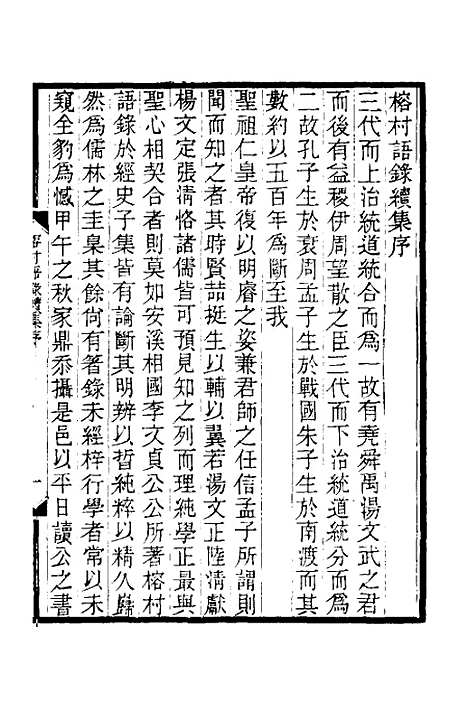 榕村語錄續集序
三代而上治統道統合而爲一故有堯舜禹湯文武之君
而後有益稷伊周望散之臣三代而下治統道統分而爲
二故孔子生於衰周孟子生於戰國朱子生於南渡而其
數約以五百年爲斷至我
聖祖仁皇帝復以明睿之姿兼君師之任信孟子所謂則
聞而知之者其時賢喆挺生以輔以翼若湯文正陸清獻
楊文定張清恪諸儒皆可預見知之列而理純學正最與
聖心相契合者則莫如安溪相國李文貞公公所著榕村
語錄於經史子集皆有論斷其明辨以晳純粹以精久歸
然爲儒林之圭臬其餘尙有著錄未經梓行學者常以未
窺全豹爲憾甲午之秋家鼎忝攝是邑以平日讀公之書
榕村語錄續集序
一